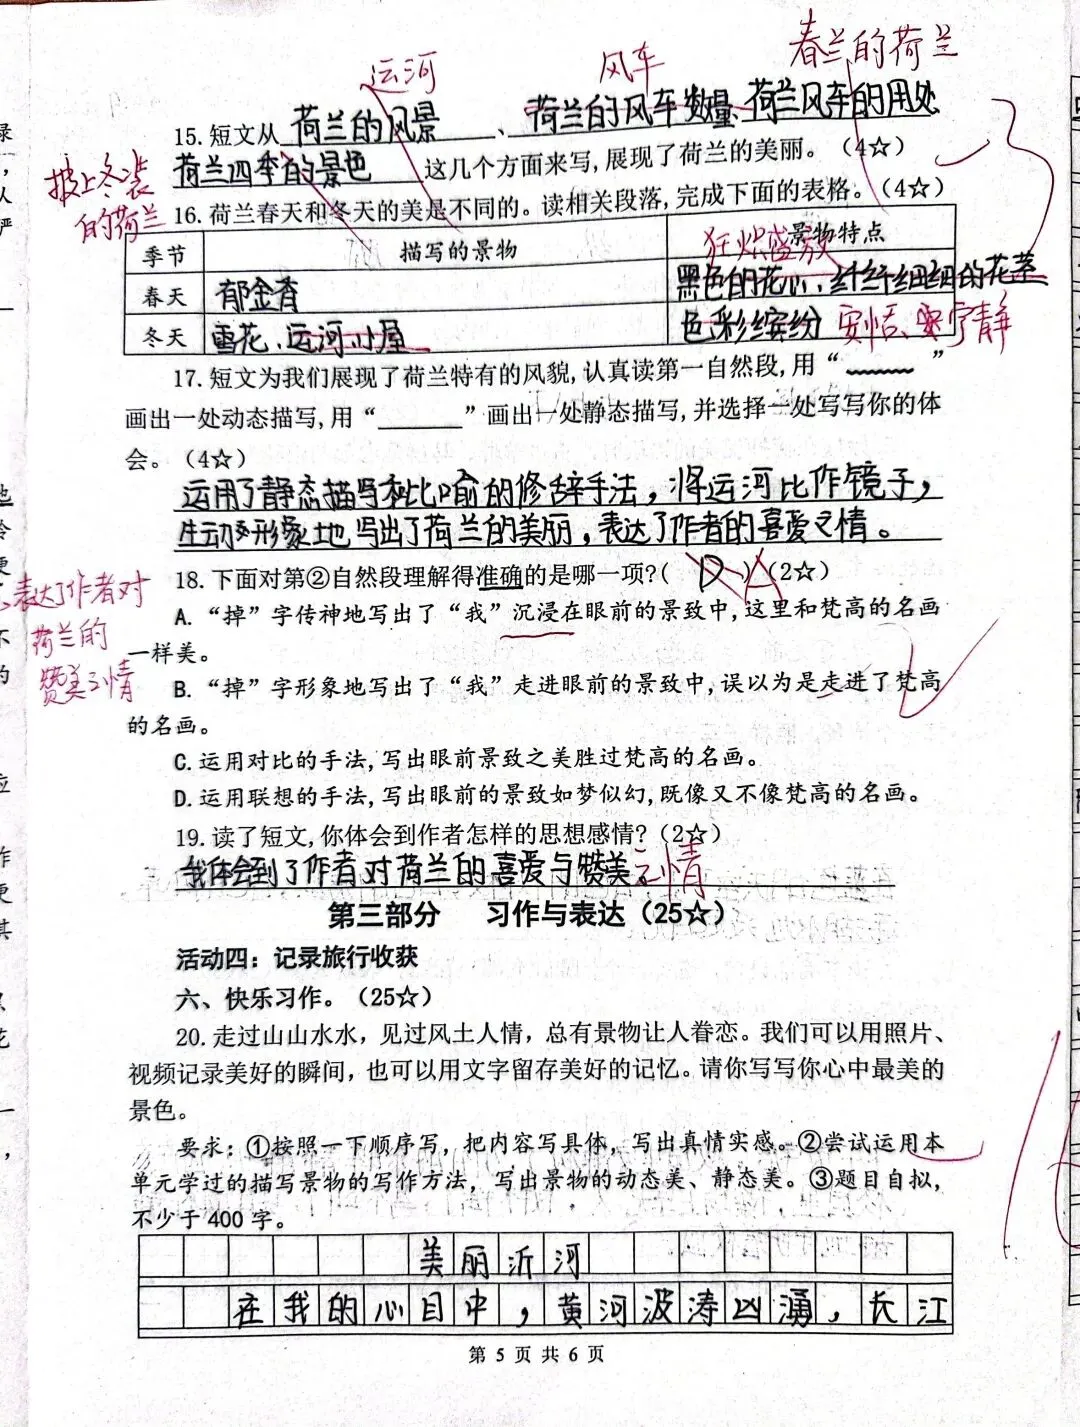 春兰的荷兰
运河
风车
15.短文从 荷兰的风景 、荷兰的风车数量、荷兰风车的用处
荷兰四季的景色 这几个方面来写,展现了荷兰的美丽。(4☆)
披上冬装
的荷兰
16.荷兰春天和冬天的美是不同的。读相关段落,完成下面的表格。(4☆)
季节 描写的景物 景物特点
狂炽盛放
春天 郁金香 黑色的花心、纤纤细细的花茎
冬天 雪花、运河、小屋 色彩缤纷 安恬、安宁静
17.短文为我们展现了荷兰特有的风貌,认真读第一自然段,用“﹏﹏﹏”
画出一处动态描写,用“______”画出一处静态描写,并选择一处写写你的体
会。(4☆)
运用了静态描写和比喻的修辞手法，将运河比作镜子，
生动形象地写出了荷兰的美丽，表达了作者的喜爱之情。
18.下面对第②自然段理解得准确的是哪一项?( D )A(2☆)
表达了作者对
荷兰的
赞美之情
A.“掉”字传神地写出了“我”沉浸在眼前的景致中,这里和梵高的名画
一样美。
B.“掉”字形象地写出了“我”走进眼前的景致中,误以为是走进了梵高
的名画。
C.运用对比的手法,写出眼前景致之美胜过梵高的名画。
D.运用联想的手法,写出眼前的景致如梦似幻,既像又不像梵高的名画。
19.读了短文,你体会到作者怎样的思想感情?(2☆)
我体会到了作者对荷兰的喜爱与赞美之情
第三部分 习作与表达(25☆)
活动四：记录旅行收获
六、快乐习作。(25☆)
20.走过山山水水，见过风土人情，总有景物让人眷恋。我们可以用照片、
视频记录美好的瞬间，也可以用文字留存美好的记忆。请你写写你心中最美的
景色。
要求：①按照一下顺序写，把内容写具体，写出真情实感。②尝试运用本
单元学过的描写景物的写作方法，写出景物的动态美、静态美。③题目自拟，
不少于400字。
美丽沂河
在我的心目中，黄河波涛凶涌，长江
第5页共6页